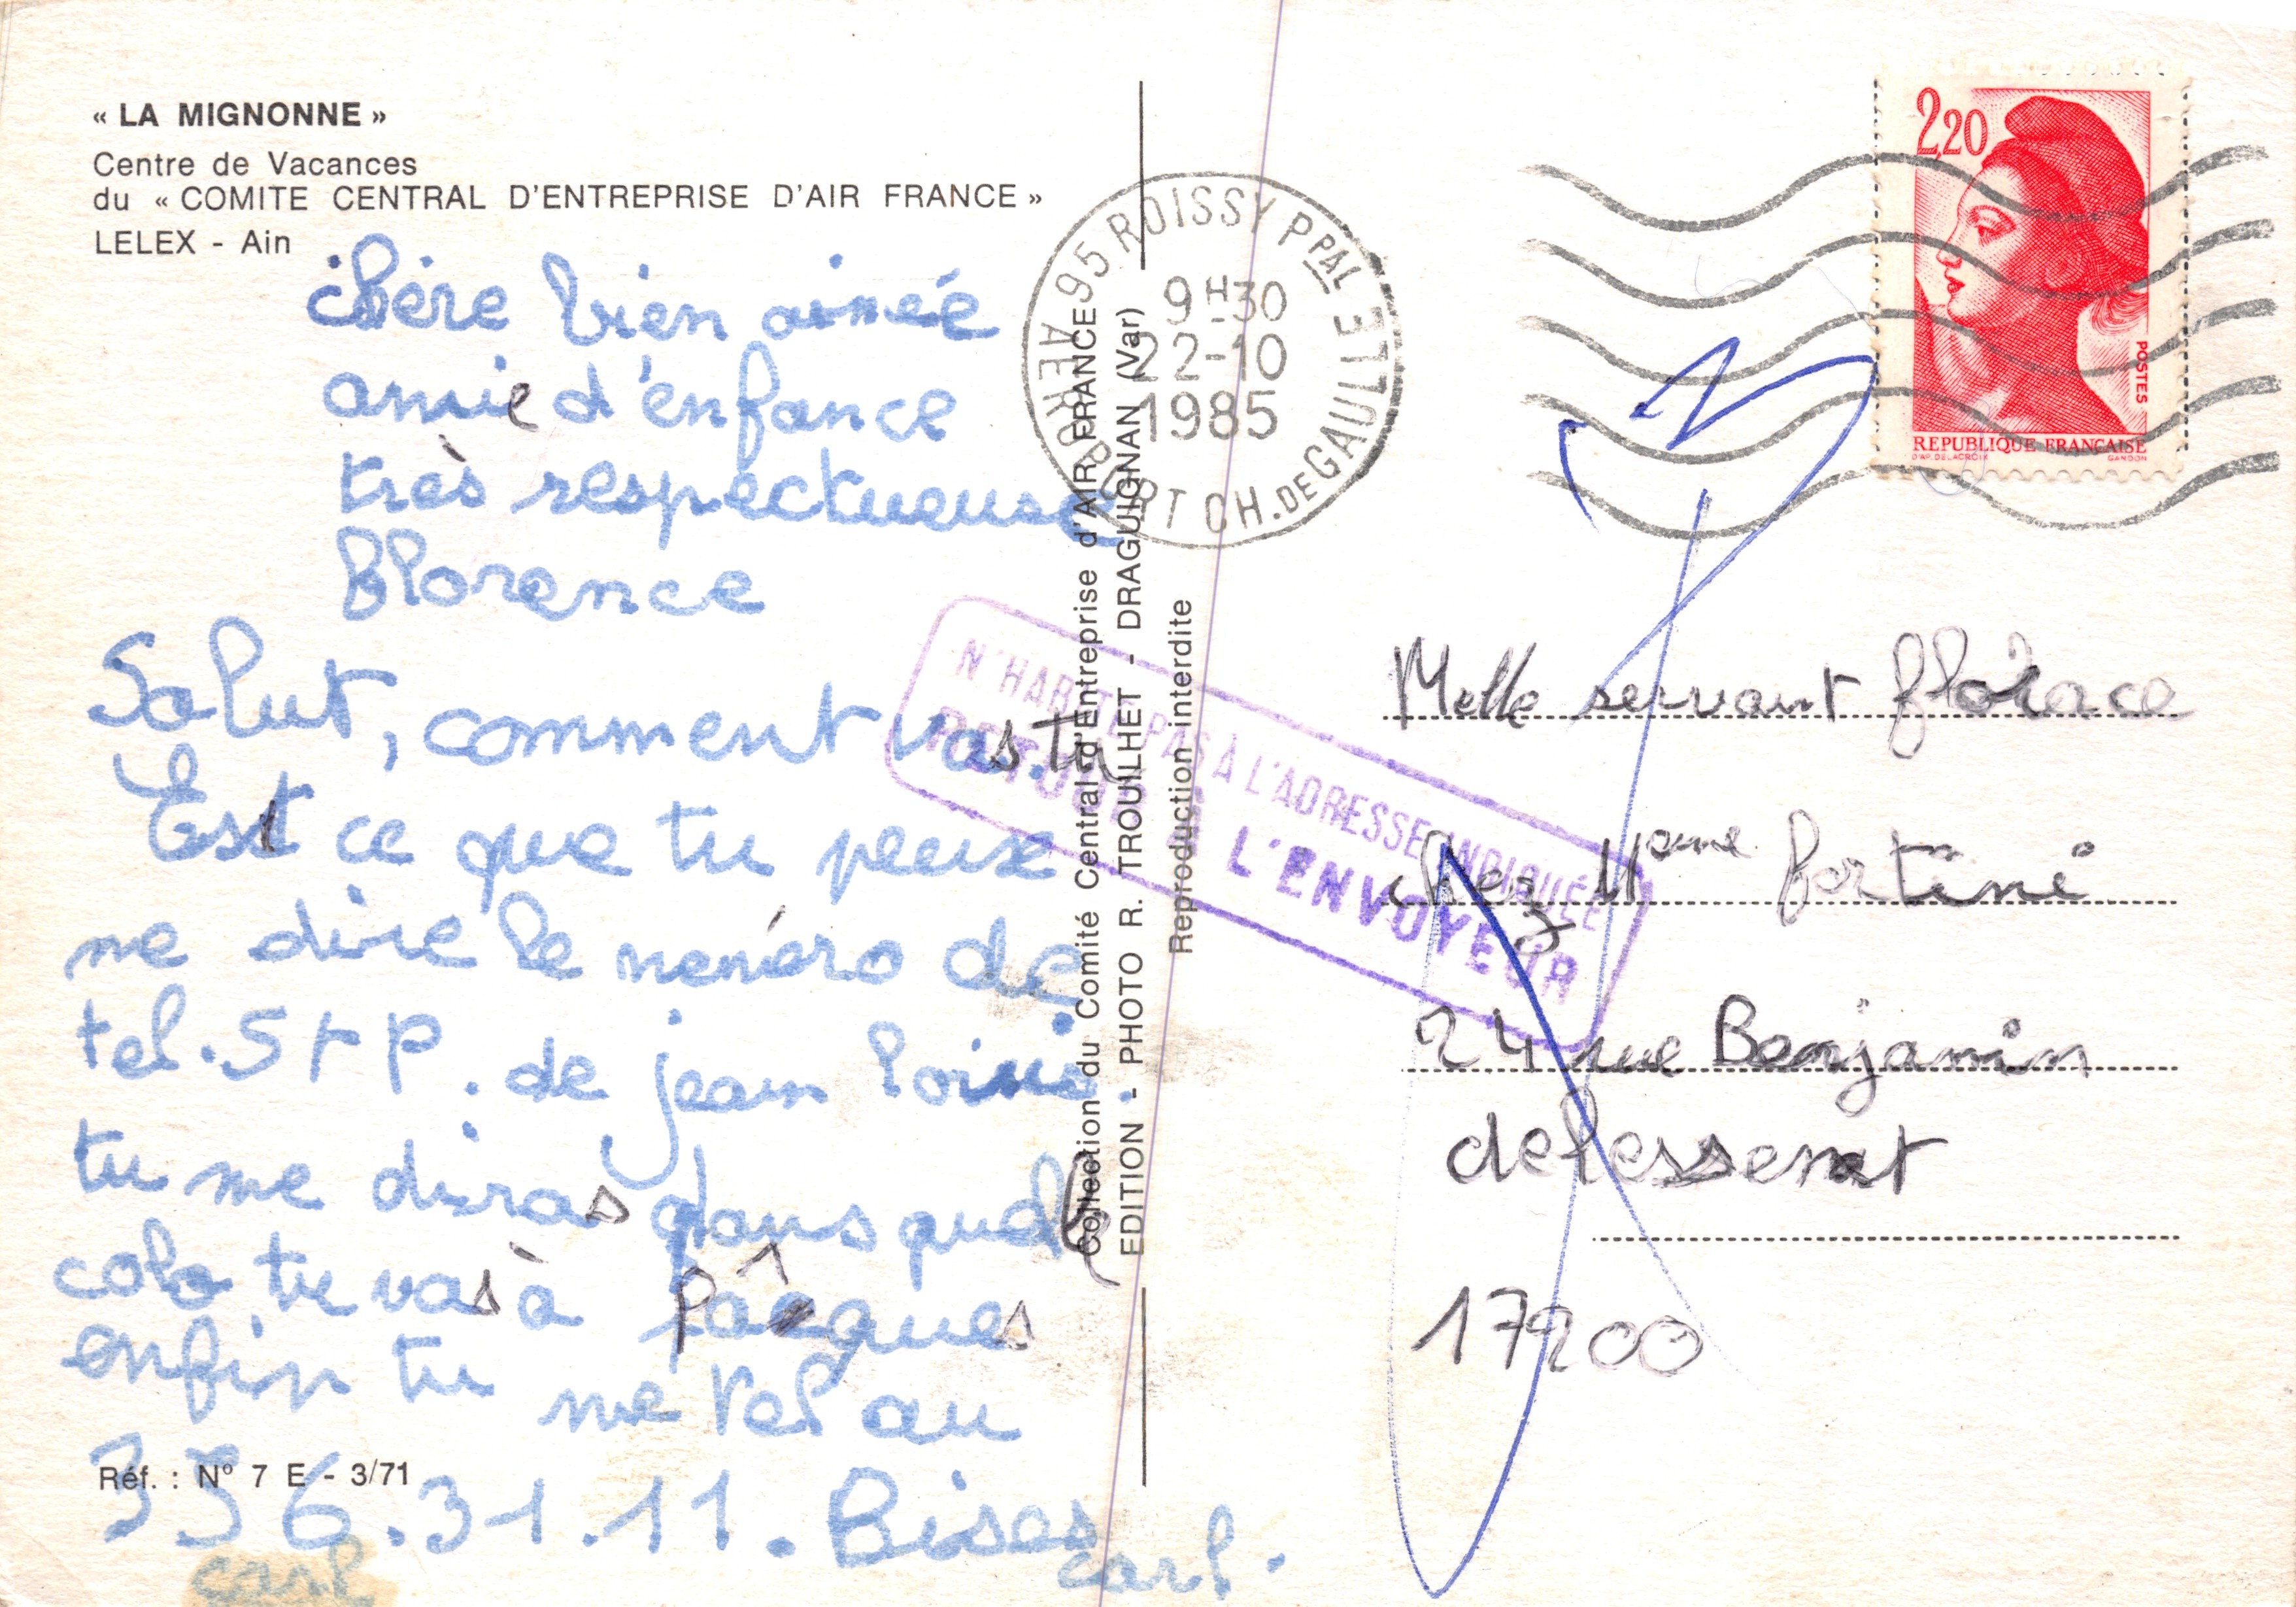 « LA MIGNONNE »
Centre de Vacances
du « COMITE CENTRAL D'ENTREPRISE D'AIR FRANCE »
LELEX - Ain
chère bien aimée
amie d'enfance
très respectueuse
Florence
Salut, comment vas.tu
Est ce que tu peux
me dire le neméro de
tel. S t P. de jean loius.
tu me diras dans quel
colo tu vas à pâques
enfin tu me tel au
Réf. : N° 7 E - 3/71
356.31.11. Bises
carl
carl.
Collection du Comité Central d'Entreprise d'AIR FRANCE
EDITION - PHOTO R. TROUILHET - DRAGUIGNAN (Var)
Reproduction interdite
95 ROISSY PPAL
AEROPORT CH. DE GAULLE
9H-30
22-10
1985
N'HABITE PAS À L'ADRESSE INDIQUÉE
RETOUR À L'ENVOYEUR
2,20
POSTES
REPUBLIQUE FRANÇAISE
D'AP. DELACROIX GANDON
Melle servant
chez Mme fortini
24 rue Benjamin
delessert
17200